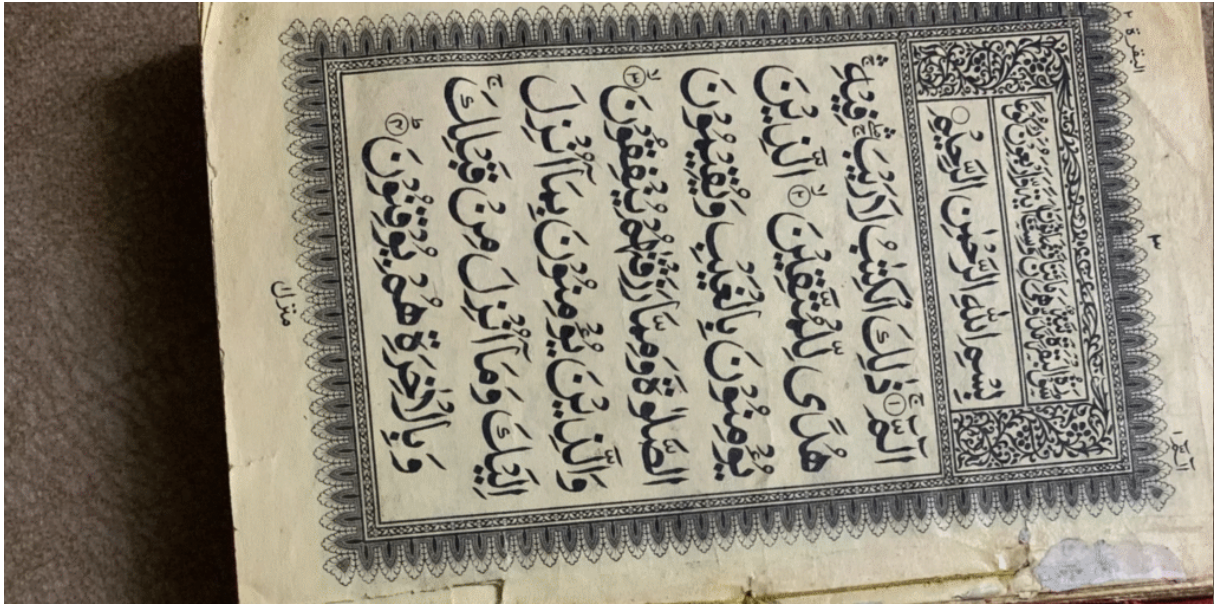 البقرة ٢
٣
الٓمّٓ ١
بِسْمِ اللهِ الرَّحْمٰنِ الرَّحِيْمِ
الٓمّٓ ۚ ﴿١﴾ ذٰلِكَ الْكِتٰبُ لَا رَيْبَ ۛۚ فِيْهِ ۛۚ
هُدًى لِّلْمُتَّقِيْنَ ۙ ﴿٢﴾ الَّذِيْنَ
يُؤْمِنُوْنَ بِالْغَيْبِ وَيُقِيْمُوْنَ
الصَّلٰوةَ وَمِمَّا رَزَقْنٰهُمْ يُنْفِقُوْنَ ۙ ﴿٣﴾
وَالَّذِيْنَ يُؤْمِنُوْنَ بِمَآ اُنْزِلَ
اِلَيْكَ وَمَآ اُنْزِلَ مِنْ قَبْلِكَ ۚ
وَبِالْاٰخِرَةِ هُمْ يُوْقِنُوْنَ ؕ ﴿٤﴾
منزل